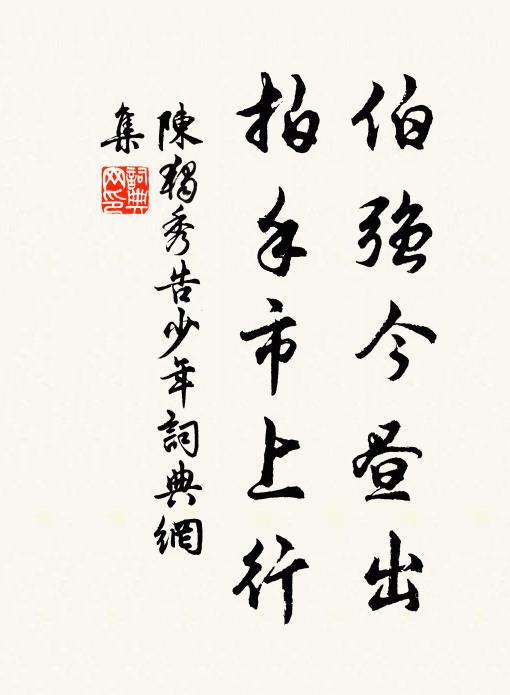 伯強今昼出
拍手市上行
陳獨秀告少年詞典網
集
詞典
网印